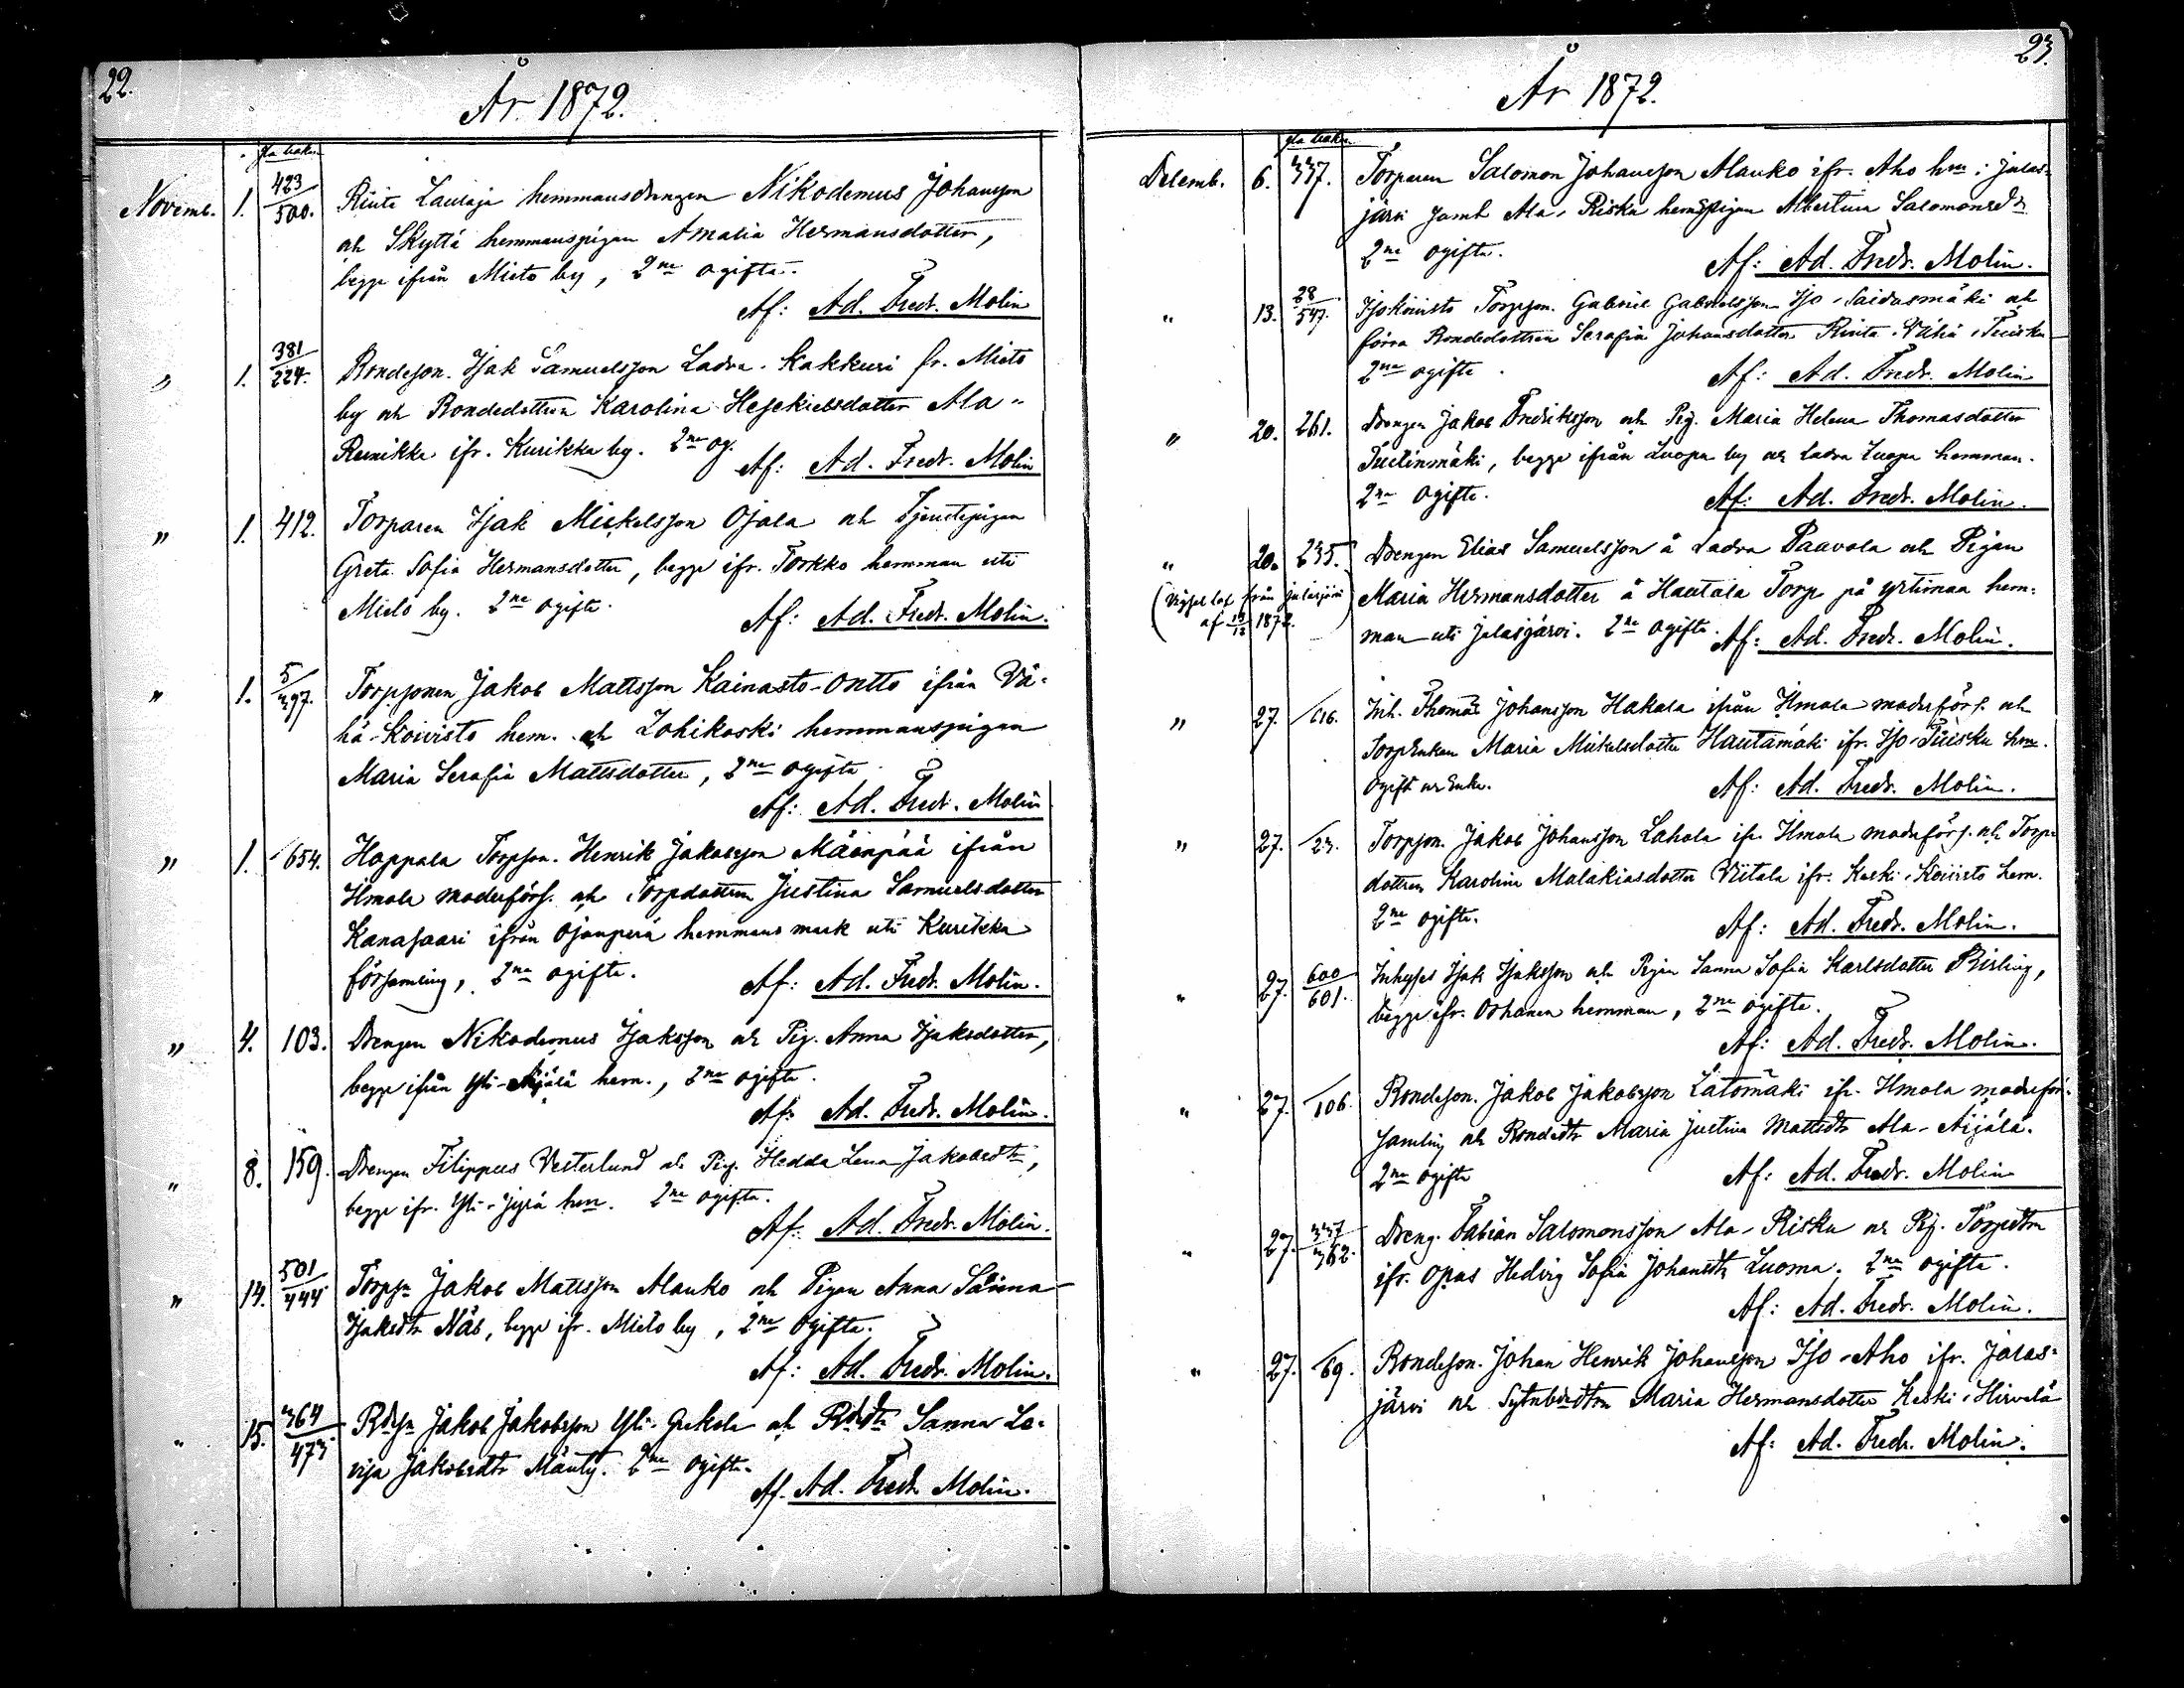 22.
År 1872.
Novemb. 1. 423/500. Rinta Laulaja hemmansdrengen Nikodemus Johansson
och Skyttä hemmanspigan Amalia Hermansdotter,
begge ifrån Mieto by, 2ne ogifta.
Af: Ad. Fredr. Molin
" 1. 381/224. Bondeson. Isak Samuelsson Ladva-Kakkuri fr. Mieto
by och Bondedottren Karolina Hesekielsdotter Ala-
Reinikka ifr. Kurikka by. 2ne og.
Af: Ad. Fredr. Molin
" 1. 412. Torparen Isak Mickelsson Ojala och Tjenstepigan
Greta Sofia Hermansdotter, begge ifr. Torkko hemman uti
Mieto by. 2ne ogifta.
Af: Ad. Fredr. Molin.
" 1. 5/397. Torpsonen Jakob Mattsson Kainasto-Ontto ifrån Vä-
hä-Koivisto hem. och Lohikoski hemmanspigan
Maria Serafia Mattsdotter, 2ne ogifta
Af: Ad. Fredr. Molin
" 1. /654. Hoppala Torpson. Henrik Jakobsson Mäenpää ifrån
Ilmola moderförs. och Torpdottren Justina Samuelsdotter
Kanasaari ifrån Ojanperä hemmans mark uti Kurikka
församling, 2ne ogifta.
Af: Ad. Fredr. Molin.
" 4. 103. Drengen Nikodemus Isaksson och Pig. Anna Isaksdotter,
begge ifrån Yli-Äijälä hem., 2ne ogifta.
Af: Ad. Fredr. Molin.
" 8. 159. Drengen Filippus Vesterlund och Pig. Hedda Lena Jakobsdtr,
begge ifr. Yli-Jyrä hem. 2ne ogifta.
Af: Ad. Fredr. Molin.
" 14. 501/444 Torpsn Jakob Mattsson Alanko och Pigan Anna Sanna
Isaksdtr Näs, begge ifr. Mieto by, 2ne Ogifta.
Af: Ad. Fredr. Molin.
" 15. 364/473 Bdsn Jakob Jakobsson Yli- och Bdedtr Sanna Lo-
visa Jakobsdtr Mänty. 2ne ogifta.
Af. Ad. Fredr Molin.
23.
År 1872.
Decemb. 6. 337. Torparen Salomon Johansson Alanko ifr. Aho hm i Jalas-
järvi samt Ala-Riska hemspigan Albertina Salomonsdr
2ne ogifta.
Af: Ad. Fredr. Molin.
" 13. 28/547. Isokoivisto Torpson. Gabriel Gabrielsson Iso-Saidasmäki och
förra Bondedottren Serafia Johansdotter Rinta-Vähä-Tuisku
2ne ogifta.
Af: Ad. Fredr. Molin
" 20. 261. Drengen Jakob Fredriksson och Pig. Maria Helena Thomasdotter
Tuulinmäki, begge ifrån Luopa by och Ladva Luopa hemman.
2ne Ogifta.
Af: Ad. Fredr. Molin.
" 20. 235. Drengen Elias Samuelsson å Ladva Paavola och Pigan
(Vigsel lof från Jalasjärvi Maria Hermansdotter å Hautala Torp på Yrtimaa hem-
af 1872.) man uti Jalasjärvi. 2ne ogifta.
Af: Ad. Fredr. Molin.
" 27. /616. Inh. Thomas Johansson Hakala ifrån Ilmola moderförs. och
TorpEnkan Maria Mickelsdotter Hautamäki ifr. Iso-Tuisku hm.
Ogift och Enka.
Af: Ad. Fredr. Molin.
" 27. /23. Torpson. Jakob Johansson Lahola ifr. Ilmola moderförs. och Torp-
dottren Karolina Malakiasdotter Viitala ifr. Keski-Koivisto hem.
2ne ogifta.
Af: Ad. Fredr. Molin.
" 27. 600/601. Inhyses Isak Isaksson och Pigan Sanna Sofia Karlsdotter Birling,
begge ifr. Orhanen hemman, 2ne ogifta.
Af: Ad. Fredr. Molin.
" 27. /106. Bondeson. Jakob Jakobsson Latomäki ifr. Ilmola moderför-
samling och Bondedtr Maria Justina Mattsdtr Ala-Äijälä.
2ne ogifta
Af: Ad. Fredr. Molin
" 27. 337/362. Dreng. Fabian Salomonsson Ala-Riska och Pig. Torpdtrn
ifr. Opas Hedvig Sofia Johansdtr Luoma. 2ne ogifta.
Af: Ad. Fredr. Molin.
" 27. /69. Bondeson. Johan Henrik Johansson Iso-Aho ifr. Jalas-
järvi och Maria Hermansdotter Keski-Hirvelä
Af: Ad. Fredr. Molin.